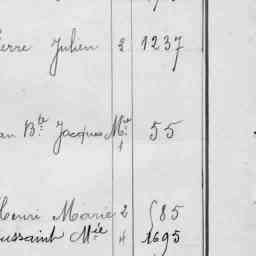 erre Julien 2 1237
an Bte Jacques Mie 1 55
Henri Marie 2 585
oussaint Mie 4 1695